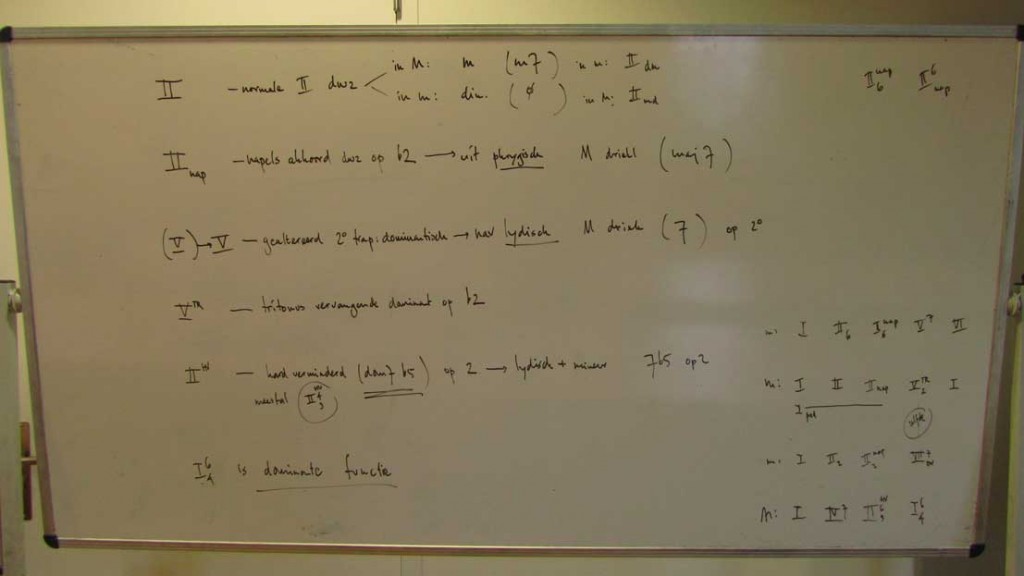 II - normale II dwz in M: m (m7) in m: II dm
in m: dim. (ø) in M: II md
II nap - napels akkoord dwz op b2 → uit phrygisch M driekl (maj7)
(V)→V - gealtereerd 2° trap: dominantisch → naar lydisch M driek (7) op 2°
V TR - tritonus vervangende dominant op b2
II HV - hard verminderd (dom7 b5) op 2 → lydisch + mineur 7b5 op 2
meestal II HV 4 3
I 6 4 is dominante functie
II nap 6 II 6 nap
m: I II 6 I 6 nap V TR VI
m: I II I nap V TR 2 I
I ped
m: I II 2 II 2 nap
M: I IV 7 II HV 4 3 I 6 4